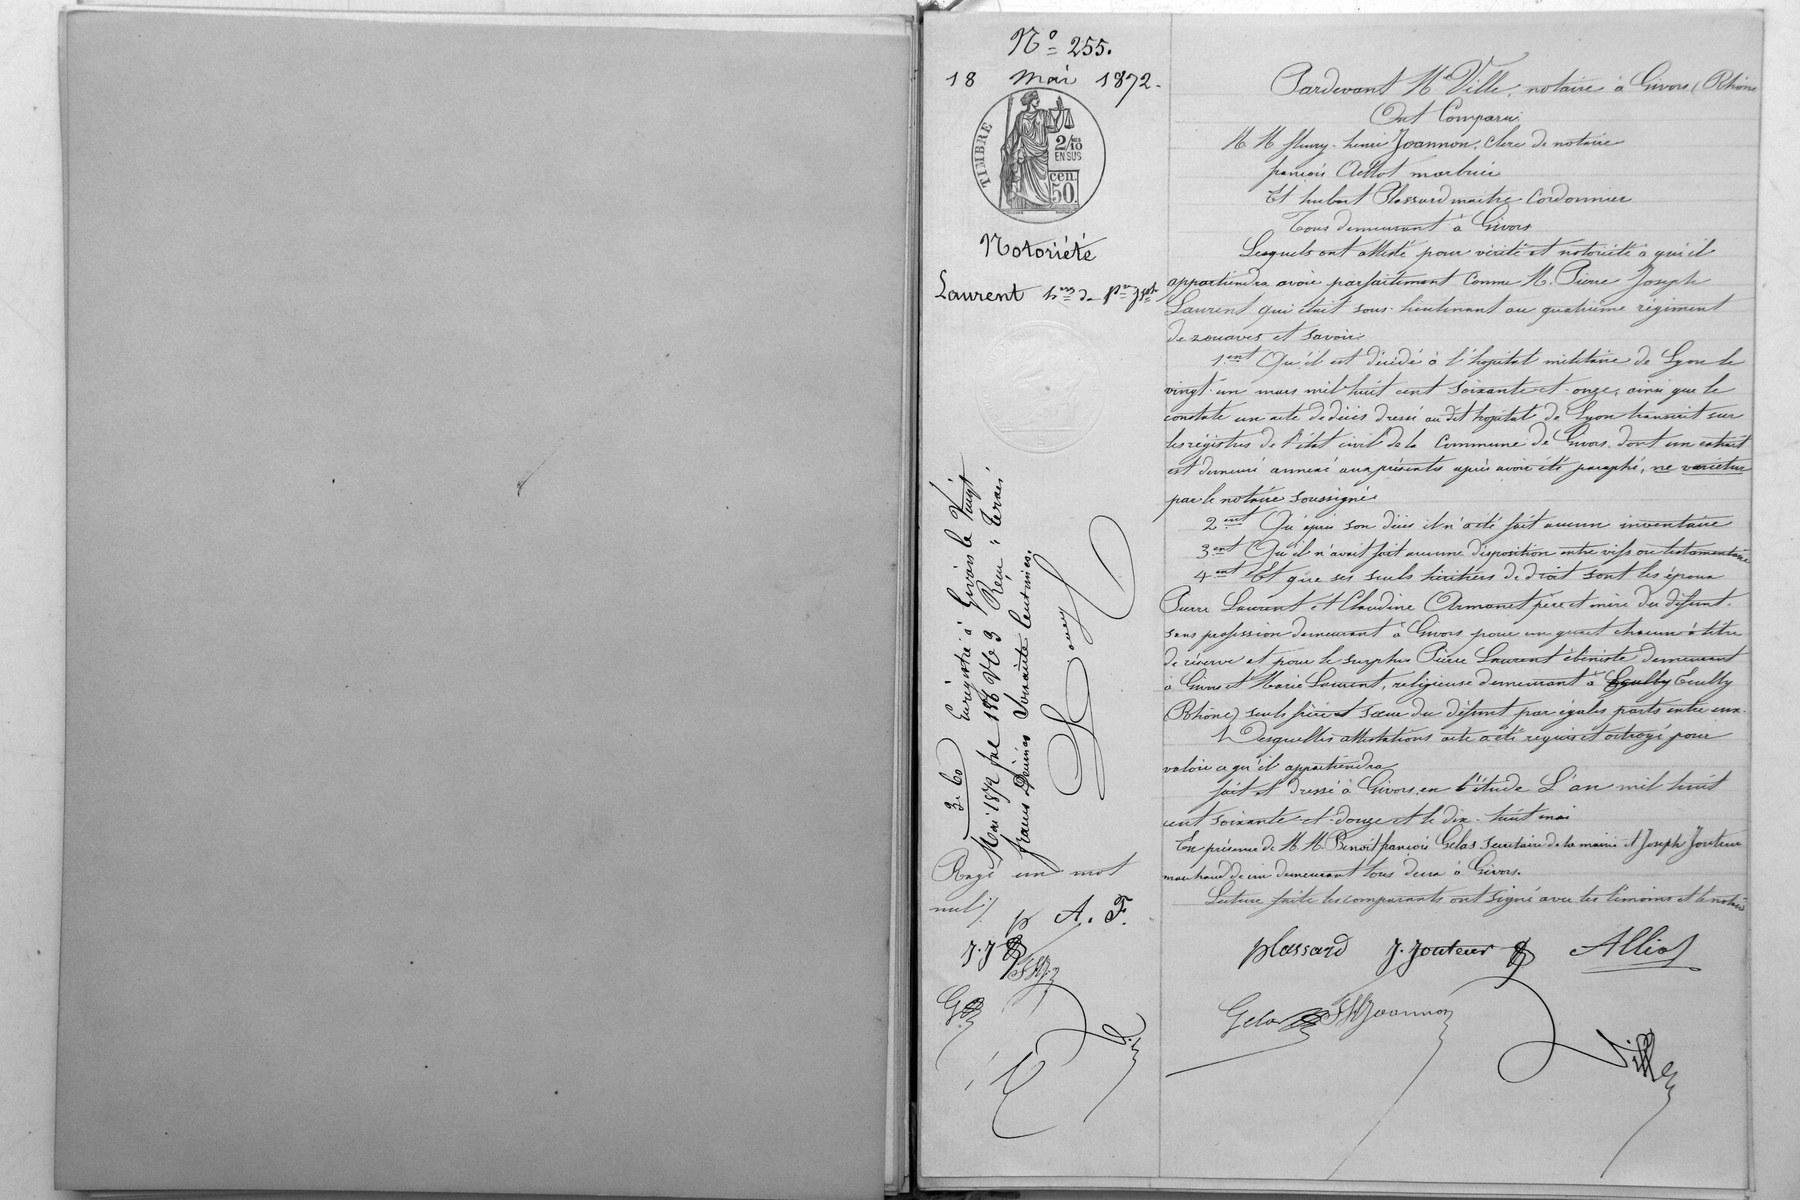 N° 255.
18 Mai 1872.
TIMBRE
2/10 EN SUS
50 cen.
Notoriété
Laurent h.ers de P.re Jsph
Pardevant Me Ville, notaire à Givors (Rhône
Ont Comparu
M M fleury-henri Joannon, clerc de notaire
françois Alliot marbrier
Et hubert Plassard maitre cordonnier
Tous demeurant à Givors
Lesquels ont attesté pour vérité et notoriété à qui il
appartiendra avoir parfaitement connu M. Pierre Joseph
Laurent qui était sous-lieutenant au quatrième régiment
de zouaves et savoir
1ent Qu'il est décédé à l'hopital militaire de Lyon le
vingt-un mars mil huit cent soixante-et-onze, ainsi que le
constate un acte de décès dressé au dit hopital de Lyon transcrit sur
les régistres de l'état civil de la Commune de Givors dont un extrait
est demeuré annexé aux présentes après avoir été paraphé, ne varietur
par le notaire soussigné
2ent Qu'après son décès il n'a été fait aucun inventaire
3ent Qu'il n'avait fait aucune disposition entre vifs ou testamentaire
4ent Et que ses seuls héritiers de droit sont les époux
Pierre Laurent et Claudine Armanet père et mère du défunt.
sans profession demeurant à Givors pour un quart chacun à titre
de réserve et pour le surplus Pierre Laurent ébéniste demeurant
à Givors et Marie Laurent, religieuse demeurant à Ecully
Rhône) seuls frère et sœur du défunt par égales parts entre eux.
Desquelles attestations acte a été requis et octroyé pour
valoir ce qu'il appartiendra
fait et dressé à Givors, en l'étude L'an mil huit
cent soixante-et-douze et le dix-huit mai
En présence de M. M. Benoit françois Gelas secrétaire de la mairie et Joseph Jouteur
marchand de vin demeurant tous deux à Givors.
Lecture faite les comparants ont signé avec les témoins et le notaire
Enrégistré à Givors le Vingt
Mai 1872 fol. 188 Vo C 3 Reçu : trois
francs Décimes Soixante centimes.
3.60
Rayé un mot
nul
p A. F.
J. J
Plassard J. Jouteur Alliot
Gelas FHJoannon
Ville